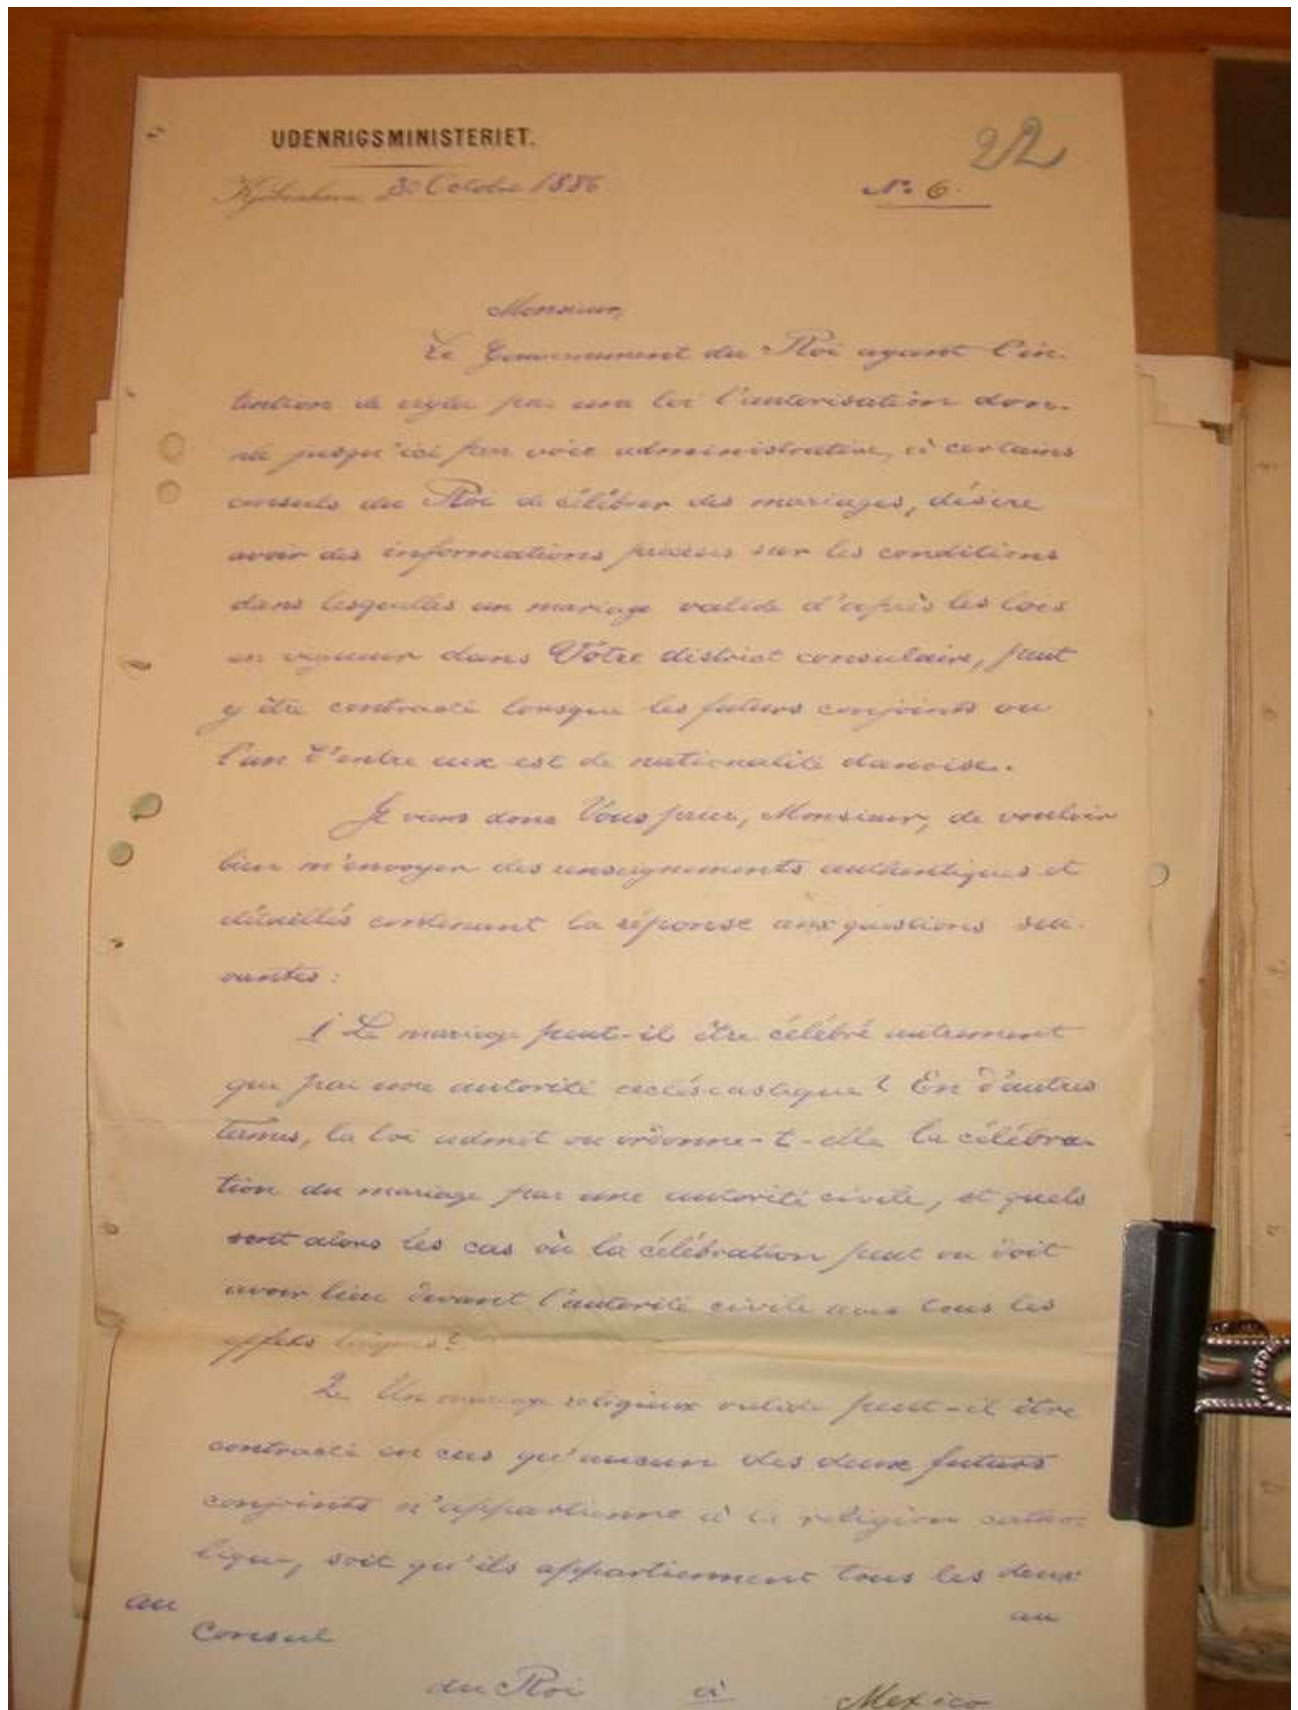 UDENRIGSMINISTERIET.
22
Kjöbenhavn, 30 Octobre 1886
No. 6.
Monsieur,
Le Gouvernement du Roi ayant l'in-
tention de régler par une loi l'autorisation don-
née jusqu'ici par voie administrative, à certains
consuls du Roi de célébrer des mariages, désire
avoir des informations précises sur les conditions
dans lesquelles un mariage valide d'après les lois
en vigueur dans Votre district consulaire, peut
y être contracté lorsque les futurs conjoints ou
l'un d'entre eux est de nationalité danoise.
Je viens donc Vous prier, Monsieur, de vouloir
bien m'envoyer des renseignements authentiques et
détaillés contenant la réponse aux questions sui-
vantes:
1 Le mariage peut-il être célébré autrement
que par une autorité ecclésiastique? En d'autres
termes, la loi admet ou ordonne-t-elle la célébra-
tion du mariage par une autorité civile, et quels
sont alors les cas où la célébration peut ou doit
avoir lieu devant l'autorité civile avec tous les
effets légaux?
2 Un mariage religieux valide peut-il être
contracté en cas qu'aucun des deux futurs
conjoints n'appartienne à la religion catho-
lique, soit qu'ils appartiennent tous les deux
au
au
Consul
du Roi à Mexico